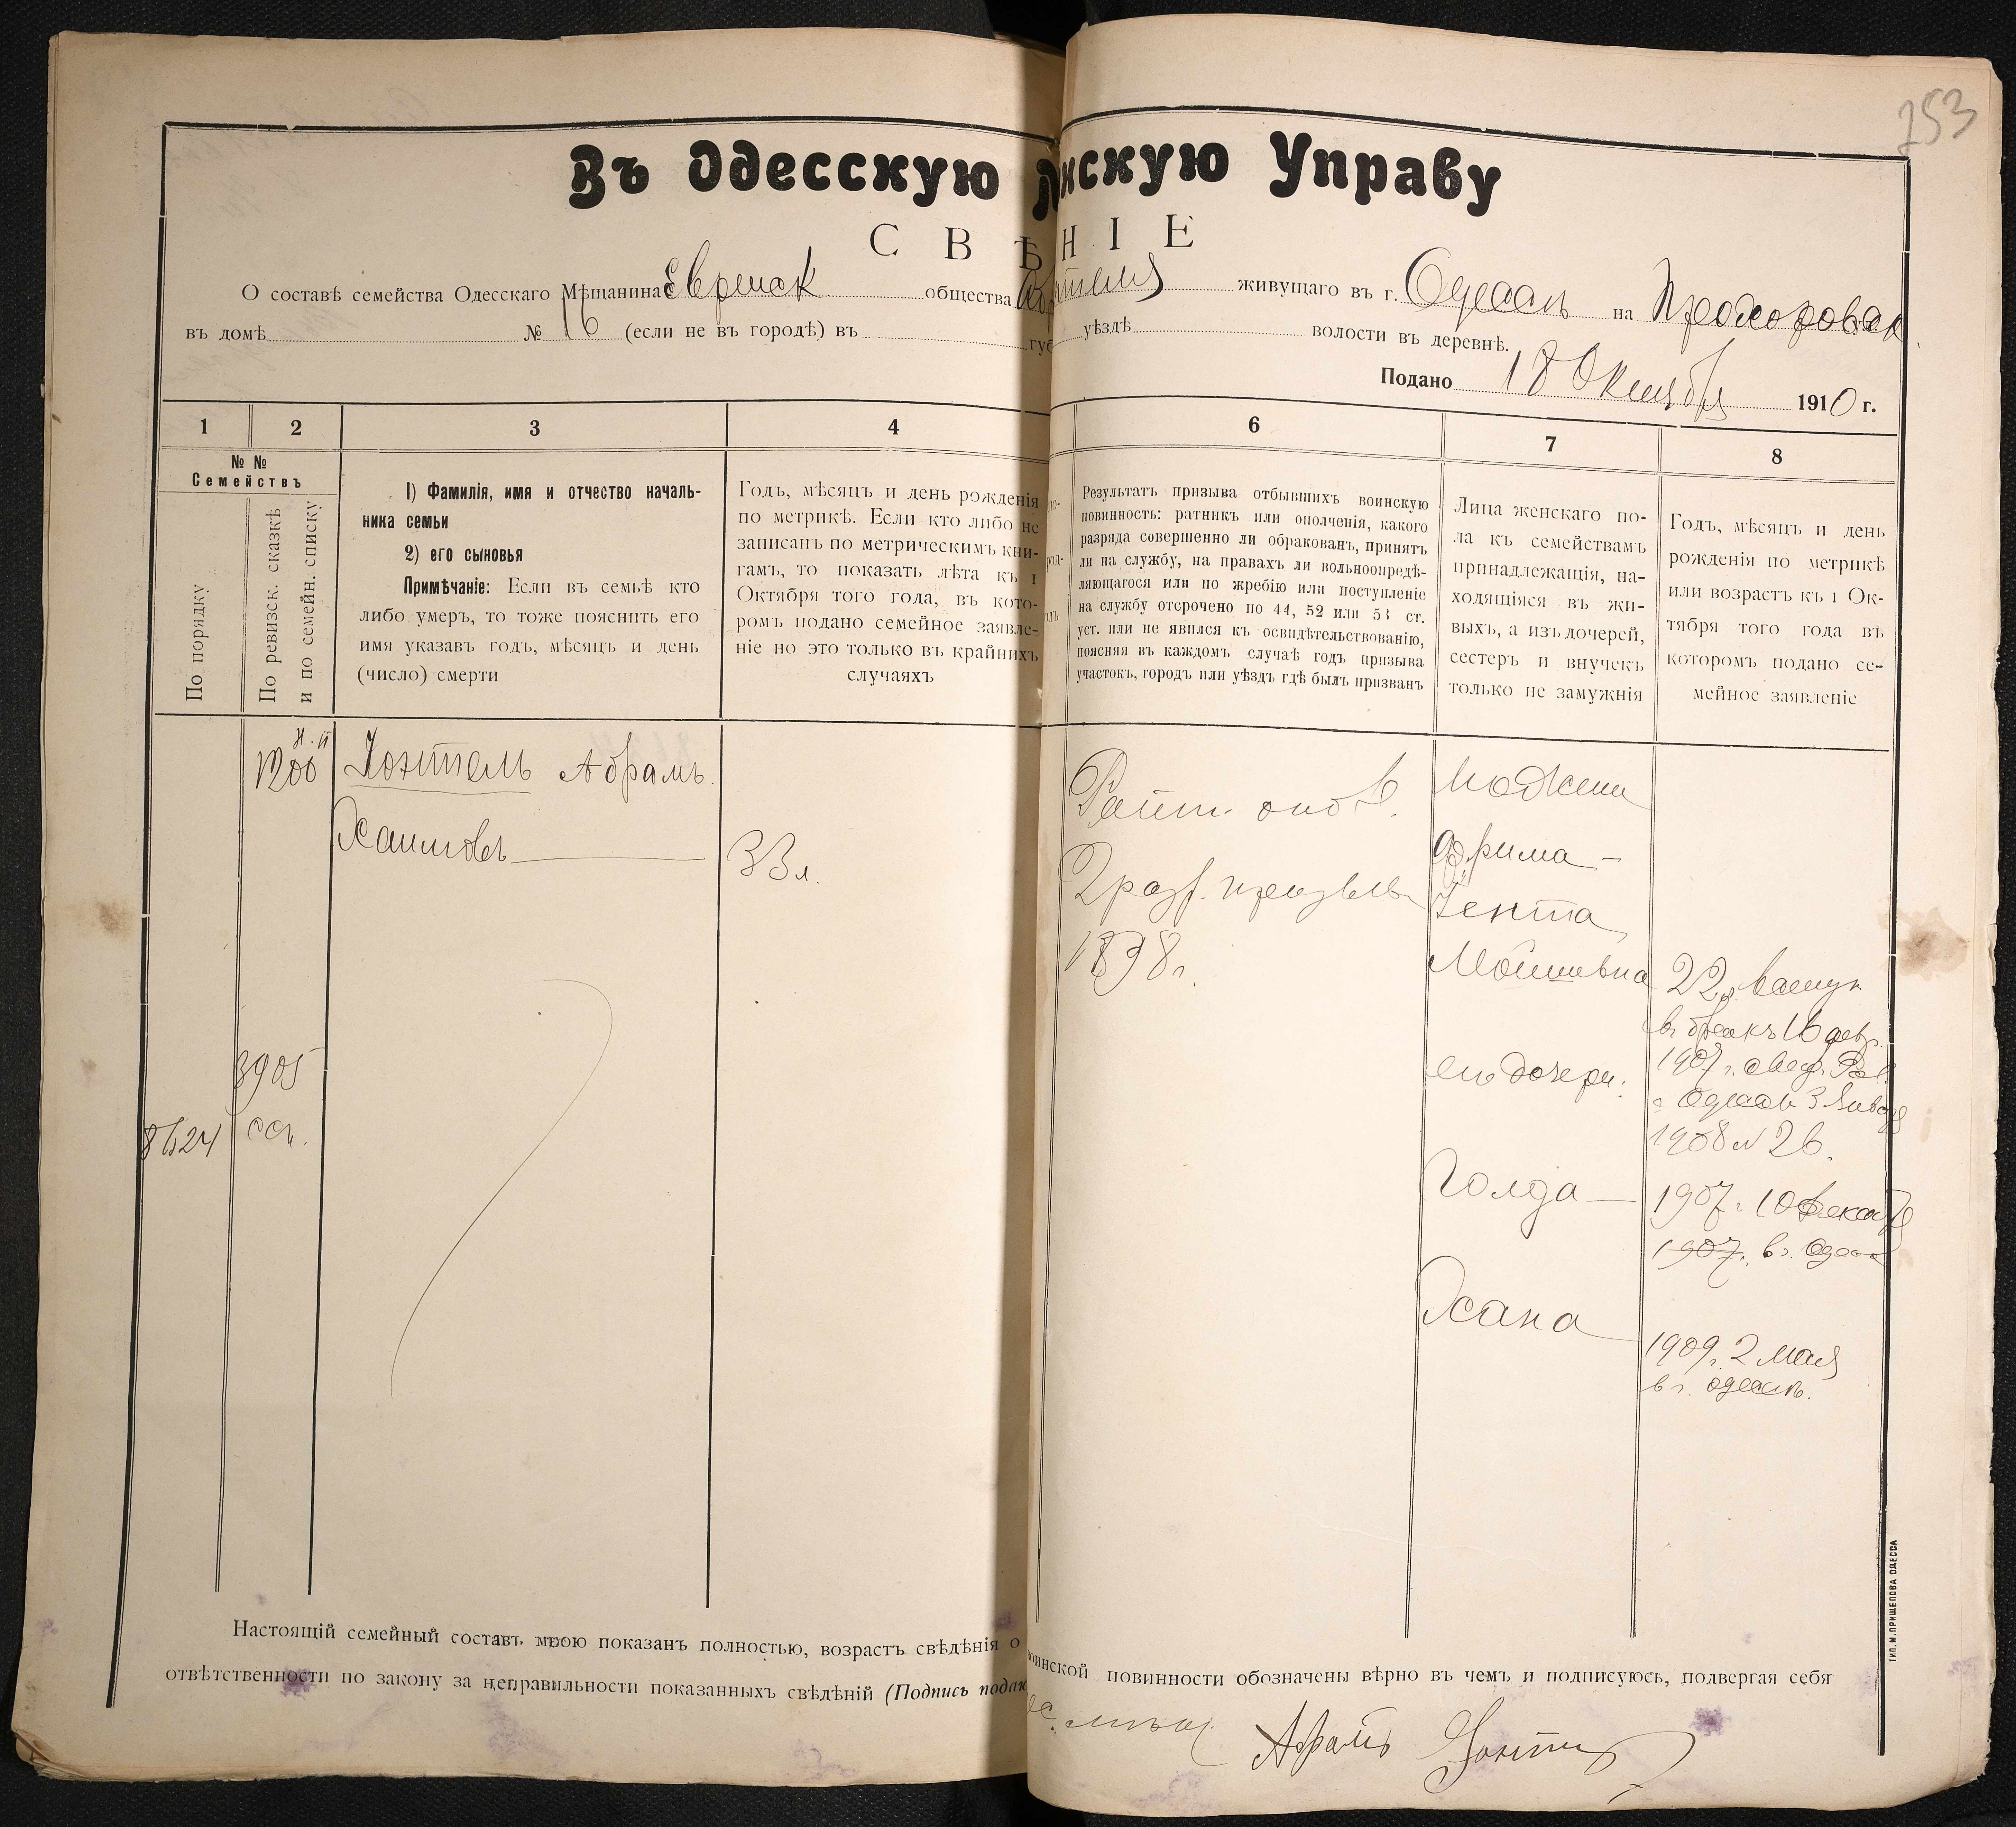 253
Въ Одесскую скую Управу
СВѢ НІЕ
О составѣ семейства Одесскаго Мѣщанина Еврейск общества живущаго въ г. Одессѣ на Прохоровск
въ домѣ № 16 (если не въ городѣ) въ губ уѣздѣ волости въ деревнѣ.
Подано 18 Октября 1910 г.
1 2 3 4 6 7 8
№ №
Семействъ
По порядку
По ревизск. сказкѣ
и по семейн. списку
1) Фамилія, имя и отчество началь-
ника семьи
2) его сыновья
Примѣчаніе: Если въ семьѣ кто
либо умеръ, то тоже пояснить его
имя указавъ годъ, мѣсяцъ и день
(число) смерти
Годъ, мѣсяцъ и день рожденія
по метрикѣ. Если кто либо не
записанъ по метрическимъ кни-
гамъ, то показать лѣта къ 1
Октября того года, въ кото-
ромъ подано семейное заявле-
ніе но это только въ крайнихъ
случаяхъ
Результатъ призыва отбывшихъ воинскую
повинность: ратникъ или ополченія, какого
разряда совершенно ли обракованъ, принятъ
ли на службу, на правахъ ли вольноопредѣ-
ляющагося или по жребію или поступленіе
на службу отсрочено по 44, 52 или 53 ст.
уст. или не явился къ освидѣтельствованію,
поясняя въ каждомъ случаѣ годъ призыва
участокъ, городъ или уѣздъ гдѣ былъ призванъ
Лица женскаго по-
ла къ семействамъ
принадлежащія, на-
ходящіяся въ жи-
выхъ, а изъ дочерей,
сестеръ и внучекъ
только не замужнія
Годъ, мѣсяцъ и день
рожденія по метрикѣ
или возрастъ къ 1 Ок-
тября того года въ
которомъ подано се-
мейное заявленіе
1200
Абрамъ
Хаимовъ
33 л.
3905
8624
Ратн. опол.
2 разр. призыва
1898 г.
Его жена
Фрима-
Гента
Мойшевна
его дочери:
Голда
Хана
22 л. вступ.
въ бракъ 16 авг.
1907 г. свид. Рав.
г. Одессы 3 Января
1908 № 26.
1907 г. 10 Декабр
1907 г. въ г. Одессѣ
1909 г. 2 Мая
въ г. Одессѣ.
Настоящій семейный составъ мною показанъ полностью, возрастъ свѣдѣнія о воинской повинности обозначены вѣрно въ чемъ и подписуюсь, подвергая себя
отвѣтственности по закону за неправильности показанныхъ свѣдѣній (Подпись
Абрамъ
ТИП. М. ПРИЩЕПОВА ОДЕССА